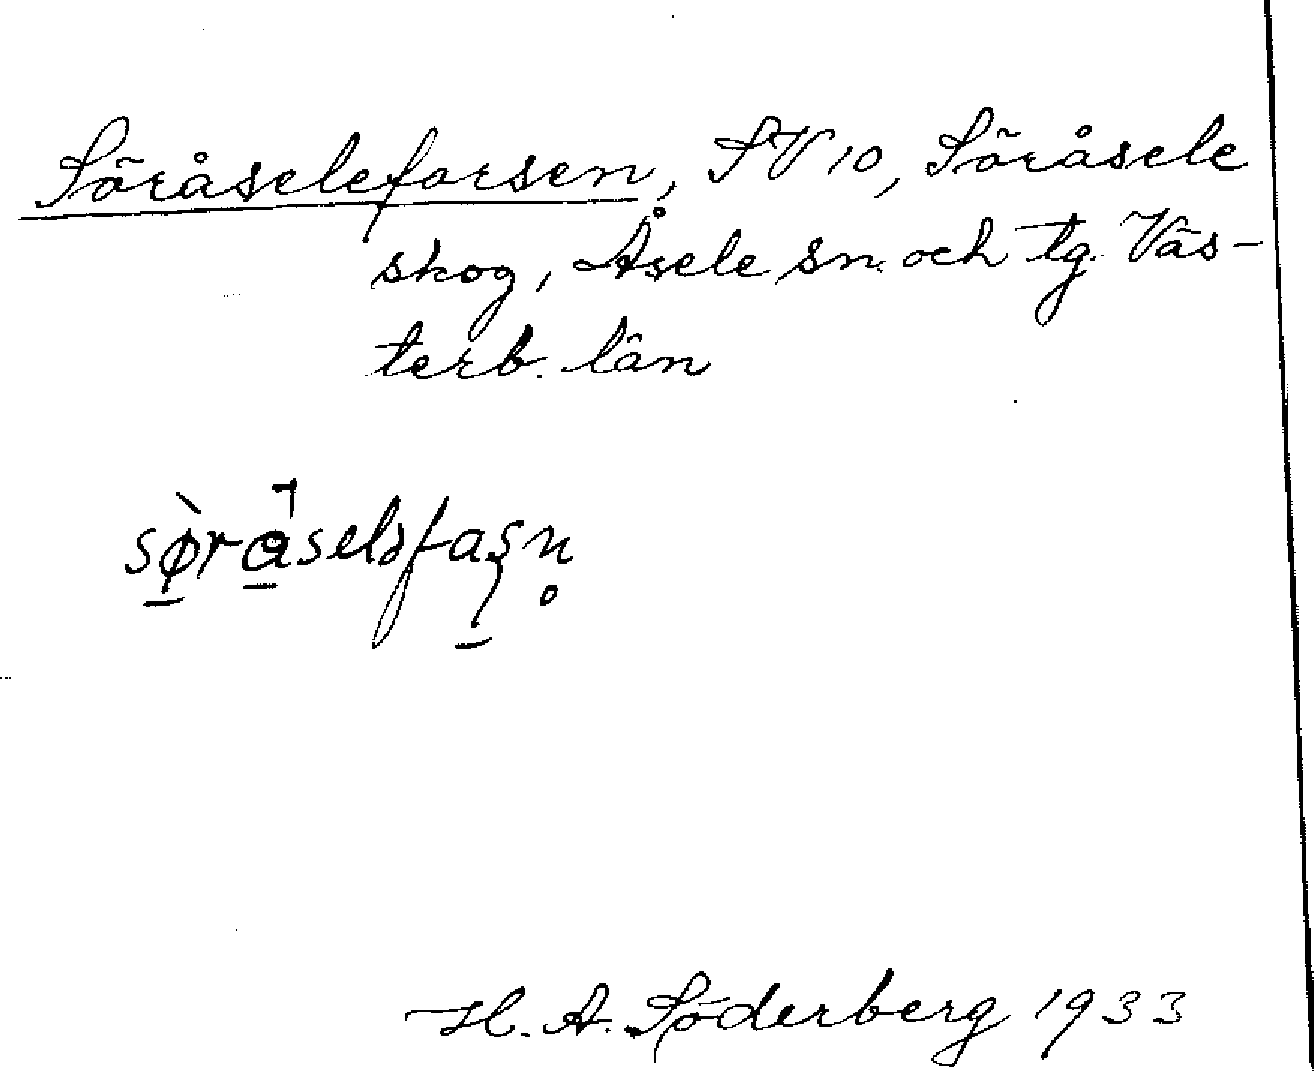 Söråseleforsen, SV 10, Söråsele
skog, Åsele sn. och tg. Väs-
terb. län
sø̀råseləfaʂn̥
H. A. Söderberg 1933